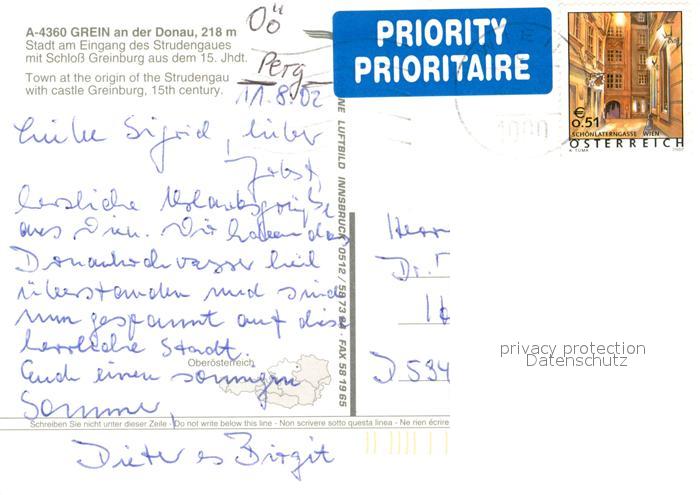 A-4360 GREIN an der Donau, 218 m
Stadt am Eingang des Strudengaues
mit Schloß Greinburg aus dem 15. Jhdt.
Town at the origin of the Strudengau
with castle Greinburg, 15th century.
OÖ
Perg
11.8.02
Liebe Sigrid, lieber
Jobst,
herzliche Urlaubsgrüße
aus Wien. Wir haben das
Donauhochwasser heil
überstanden und sind
nun gespannt auf diese
herrliche Stadt.
Euch einen sonnigen
Sommer,
Dieter es Birgit
Oberösterreich
Schreiben Sie nicht unter dieser Zeile - Do not write below this line - Non scrivere sotto questa linea - Ne rien écrire
NE LUFTBILD INNSBRUCK 0512/58 73 · FAX 58 19 65
PRIORITY
PRIORITAIRE
€
0.51
SCHÖNLATERNGASSE WIEN
ÖSTERREICH
A. TUMA
2002
Herr
Dr.
D 534
privacy protection
Datenschutz